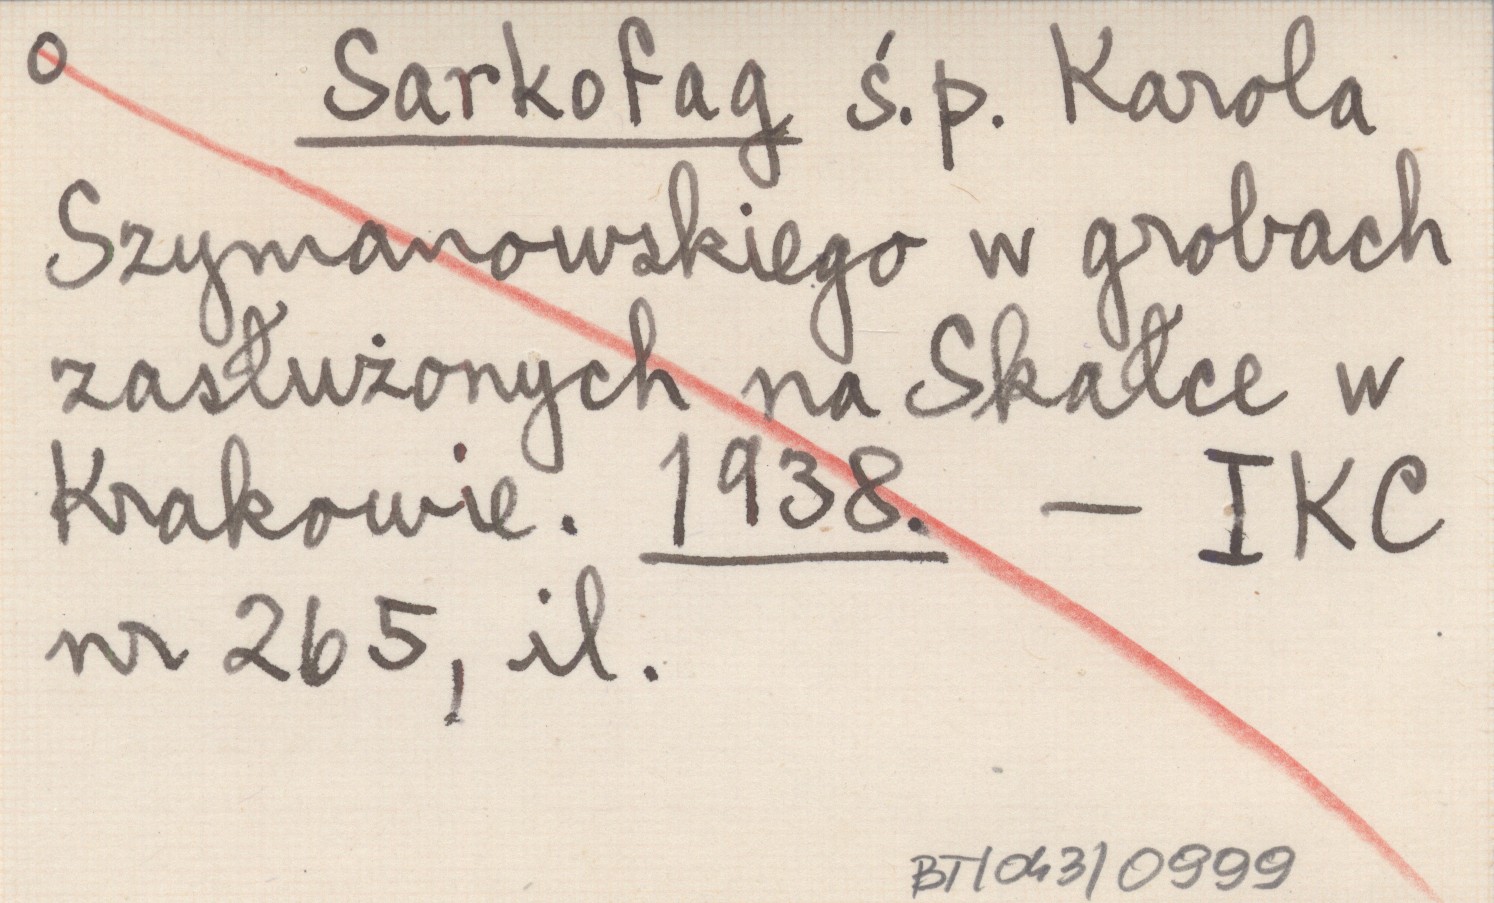 o Sarkofag ś.p. Karola
Szymanowskiego w grobach
zasłużonych na Skałce w
Krakowie. 1938. — IKC
nr 265, il.
BT/043/0999